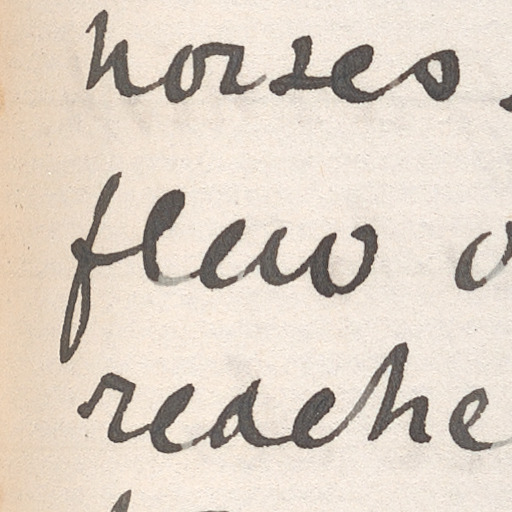 horses
flew
reache